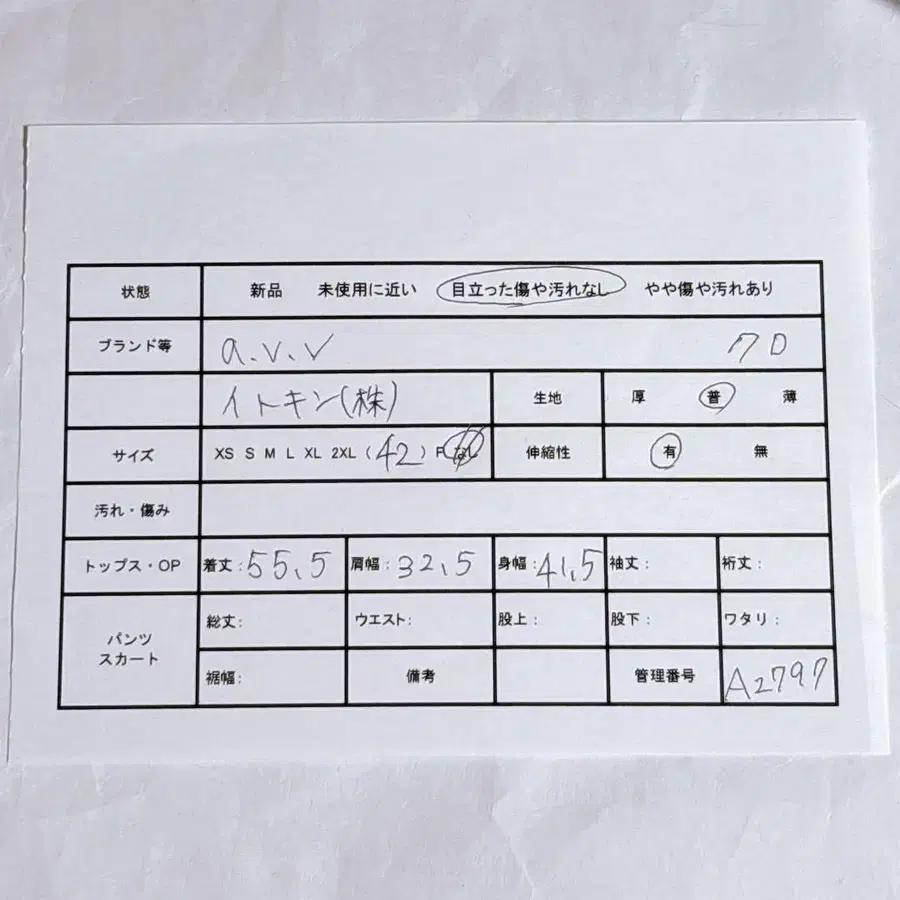 状態 新品 未使用に近い 目立った傷や汚れなし やや傷や汚れあり
ブランド等 a.v.v クロ
イトキン(株) 生地 厚 普 薄
サイズ XS S M L XL 2XL (42) F なし 伸縮性 有 無
汚れ・傷み
トップス・OP 着丈:55.5 肩幅:32.5 身幅:41.5 袖丈: 裄丈:
パンツ スカート 総丈: ウエスト: 股上: 股下: ワタリ:
裾幅: 備考 管理番号 A2797